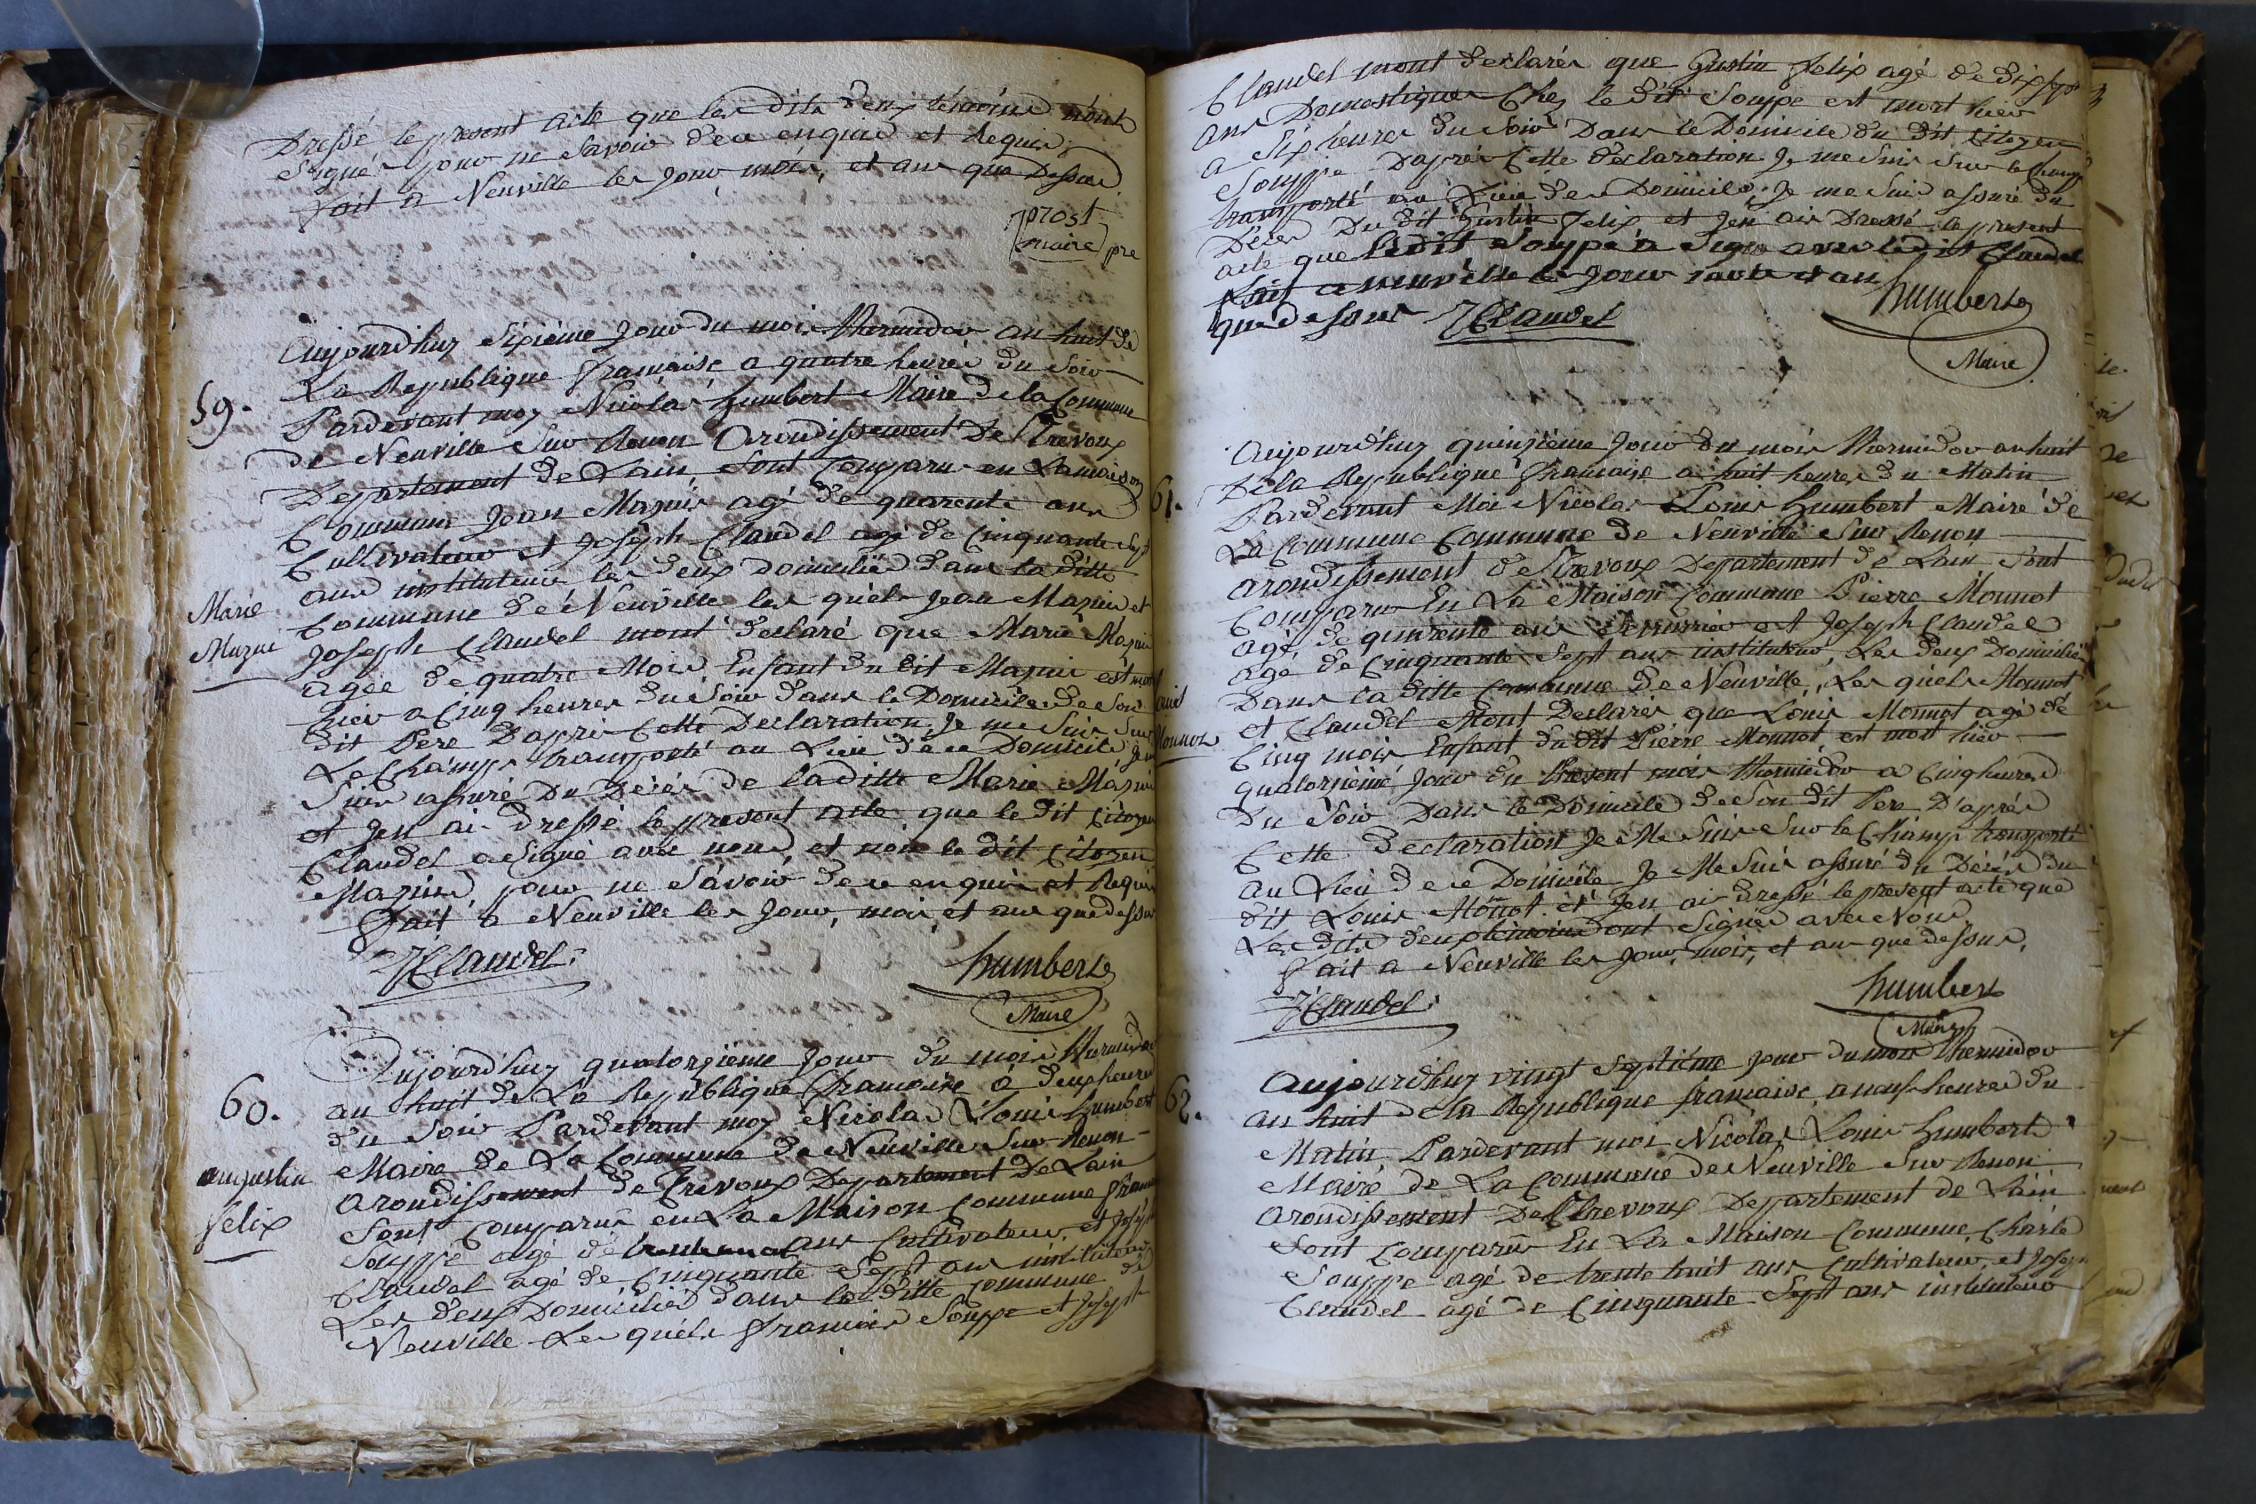 Dressé le present acte que les dits deux témoins n'ont
signés pour ne savoir de ce enquis et Requis,
fait a Neuville les Jour mois, et ans que Dessus.
prost
maire pre
59.
Marie
Mazui
Aujourdhuy Sixième Jour du mois thermidor an huit de
La Republique francaise a quatre heures du Soir
Pardevant moy Nicolas humbert Maire de la Commune
de Neuville Sur Renon Arondissement De Trevoux
Departement de Lain, Sont Comparu en La maison
Commune Jean Mazuis agé de quarente ans
Cultivateur et Joseph Claudel agé de Cinquante Sept
ans instituteur les deux domiciliés dans la ditte
Commune de Neuville les quels Jean Mazuis et
Joseph Claudel mont declaré que Marie Mazui
agée de quatre Mois Enfant du dit Mazui est mort
hier a Cinq heures du Soir dans le Domicile de Son
dit Pere D'apres Cette Declaration, Je me Suis Sur
Le Champ transporté au Lieu de ce Domicile Je m
Suis assuré Du Décés de laditte Marie Mazui
et Jen ai dressé le present acte que le dit Citoyen
Claudel a Signé avec nous, et non le dit Citoyen
Mazuis, pour ne Savoir de ce enquis et Requis
fait a Neuville les Jour, mois et ans que dessus
JClaudel
humbert
Maire
60.
augustin
felix
Aujourd'huy quatorzième Jour du mois thermidor
an huit de La Republique Francaise a deux heures
du Soir Pardevant moy Nicolas Louis humbert
Maire de La Commune de Neuville Sur Renon
arondissement de Trevoux Departement De Lain
Sont Comparus en La Maison Commune francois
Souppe agé de ans Cultivateur et Joseph
Claudel agé de Cinquante Sept ans instituteur
Les deux Domiciliés dans la ditte commune de
Neuville Les quels francois Souppe et Joseph
Claudel mont declarés que Gustin felix agé de dix sept
ans Domestique Chez le dit Souppe est mort hier
a Six heures du Soir Dans le Domicile du dit Citoyen
Souppe Dapres Cette declaration Je me Suis Sur le Champ
transporté au Lieu de ce Domicile, Je me Suis assuré du
Déces Du dit Gustin felix et Jen ai Dressé le present
acte que Ledit Souppe a Signé avec le dit Claudel
fait a neuville les Jour mois et an
que dessus JClaudel
humbert
Maire
61.
Louis
Monnot
Aujourd'huy quinzième Jour du mois thermidor an huit
De la Republique francaise a huit heures du Matin
Pardevant Moi Nicolas Louis humbert Maire de
La Commune Commune de Neuville Sur Renon
arondissement de Trevoux Departement de Lain Sont
Comparus En La Maison Commune Pierre Monnot
agé de quarente ans et Joseph Claudel
agé de Cinquante Sept ans instituteur, Les deux Domiciliés
Dans la ditte Commune de Neuville, Les quels Monnot
et Claudel Mont Declarés que Louis Monnot agé de
Cinq mois Enfant du dit Pierre Monnot est mort hier
quatorzième Jour du Present mois thermidor a Cinq heures
Du Soir Dans le Domicile de Son dit Pere D'aprés
Cette Declaration Je Me Suis Sur le Champ transporté
au Lieu de ce Domicile Je Me Suis assuré du Déces du
dit Louis Monnot et Jen ai dressé le present acte que
Les dits deux témoins ont Signés avec Nous,
fait a Neuville les Jour, mois, et an que dessus.
JClaudel
humbert
Maire
62.
Aujourd'huy vingt Septième Jour du mois thermidor
an huit de la Republique francaise, a neuf heures du
Matin Pardevant moi Nicolas Louis humbert
Maire de La Commune de Neuville Sur Renon
arondissement De Trevoux Departement de Lain
Sont Comparus En La Maison Commune, Charle
Souppe agé de trente huit ans Cultivateur, et Joseph
Claudel agé de Cinquante Sept ans instituteur